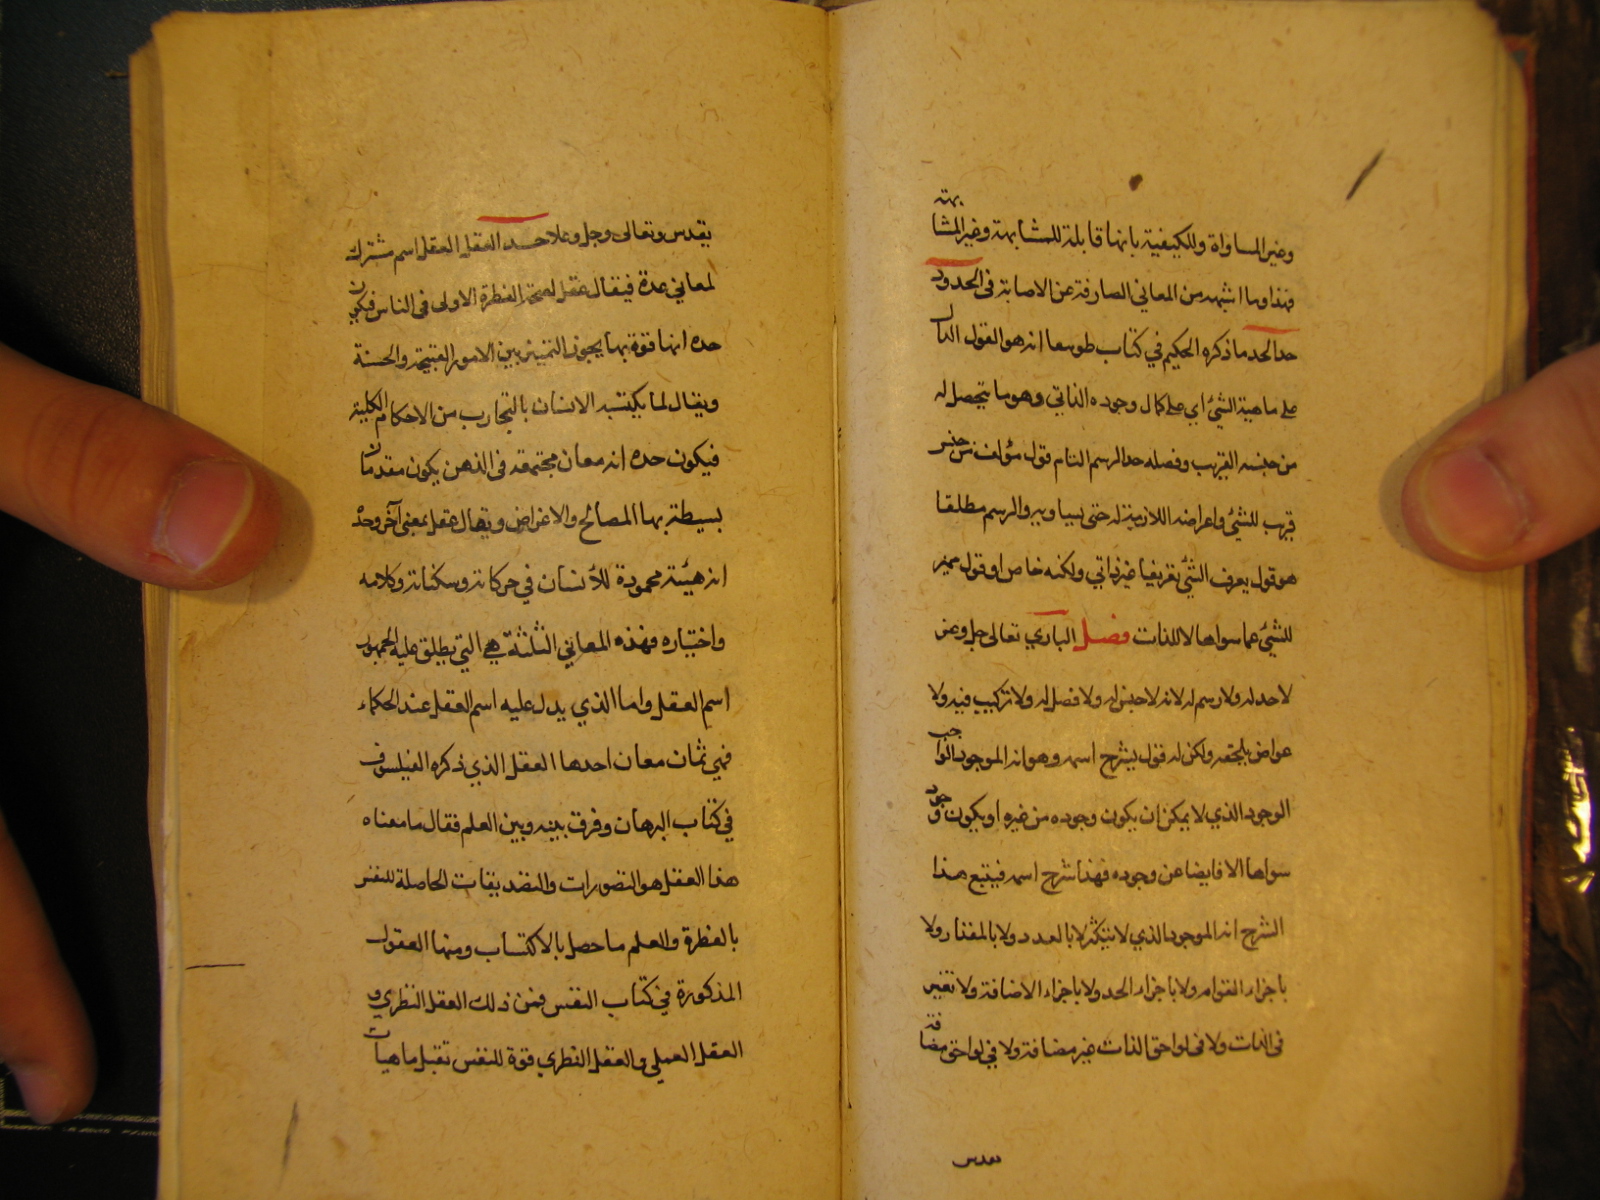 وغير المساواة وللكيفية بانها قابلة للمشابهة وغير المشابهة
فهذا وما اشبهه من المعاني الصارفة عن الاصابة في الحدود
حد الحد ما ذكره الحكيم في كتاب طوبيقا انه هو القول الدال
على ماهية الشئ اي على كمال وجوده الذاتي وهو ما يتحصل له
من جنسه القريب وفصله حد الرسم التام قول مؤلف من جنس
قريب للشئ واعراضه اللازمة له حتى يساويه والرسم مطلقا
هو قول يعرف الشئ تعريفا غير ذاتي ولكنه خاص او قول مميز
للشئ عما سواها لا اللذات فصل الباري تعالى جل وعز
لا حد له ولا رسم له لانه لا جنس له ولا فصل له ولا تركيب فيه ولا
عوارض يلحقه ولكن له قول يشرح اسمه وهو انه الموجود الواجب
الوجود الذي لا يمكن ان يكون وجوده من غيره او يكون وجود
سواها الا فايضا عن وجوده فهذا شرح اسمه فيتبع هذا
الشرح انه الموجود الذي لا يتكثر لا بالعدد ولا بالمقدار ولا
باجزاء القوام ولا باجزاء الحد ولا باجزاء الاضافة ولا تغير
في الذات ولا في لواحق الذات غير مضافة ولا في لواحق مضافة
تقدس
تقدس وتعالى وجل وعلا حد العقل العقل اسم مشترك
لمعاني عدة فيقال عقل لصحة الفطرة الاولى في الناس فيكون
حده انها قوة بها يجوز التميز بين الامور القبيحة والحسنة
ويقال لما يكتسبه الانسان بالتجارب من الاحكام الكلية
فيكون حده انه معان مجتمعة في الذهن يكون مقدمات
بسيطة بها المصالح والاغراض ويقال عقل بمعنى آخر وحده
انه هيئة محمودة للأنسان في حركاته وسكناته وكلامه
واختياره فهذه المعاني الثلثة هي التي يطلق عليه الجمهور
اسم العقل واما الذي يدل عليه اسم العقل عند الحكماء
فهي ثمان معان احدها العقل الذي ذكره الفيلسوف
في كتاب البرهان وفرق بينه وبين العلم فقال ما معناه
هذا العقل هو التصورات والتصديقات الحاصلة للنفس
بالفطرة والعلم ما حصل بالاكتساب ومنها العقول
المذكورة في كتاب النفس فمن ذلك العقل النظري و
العقل العملي والعقل النظري قوة للنفس تقبل ماهيات